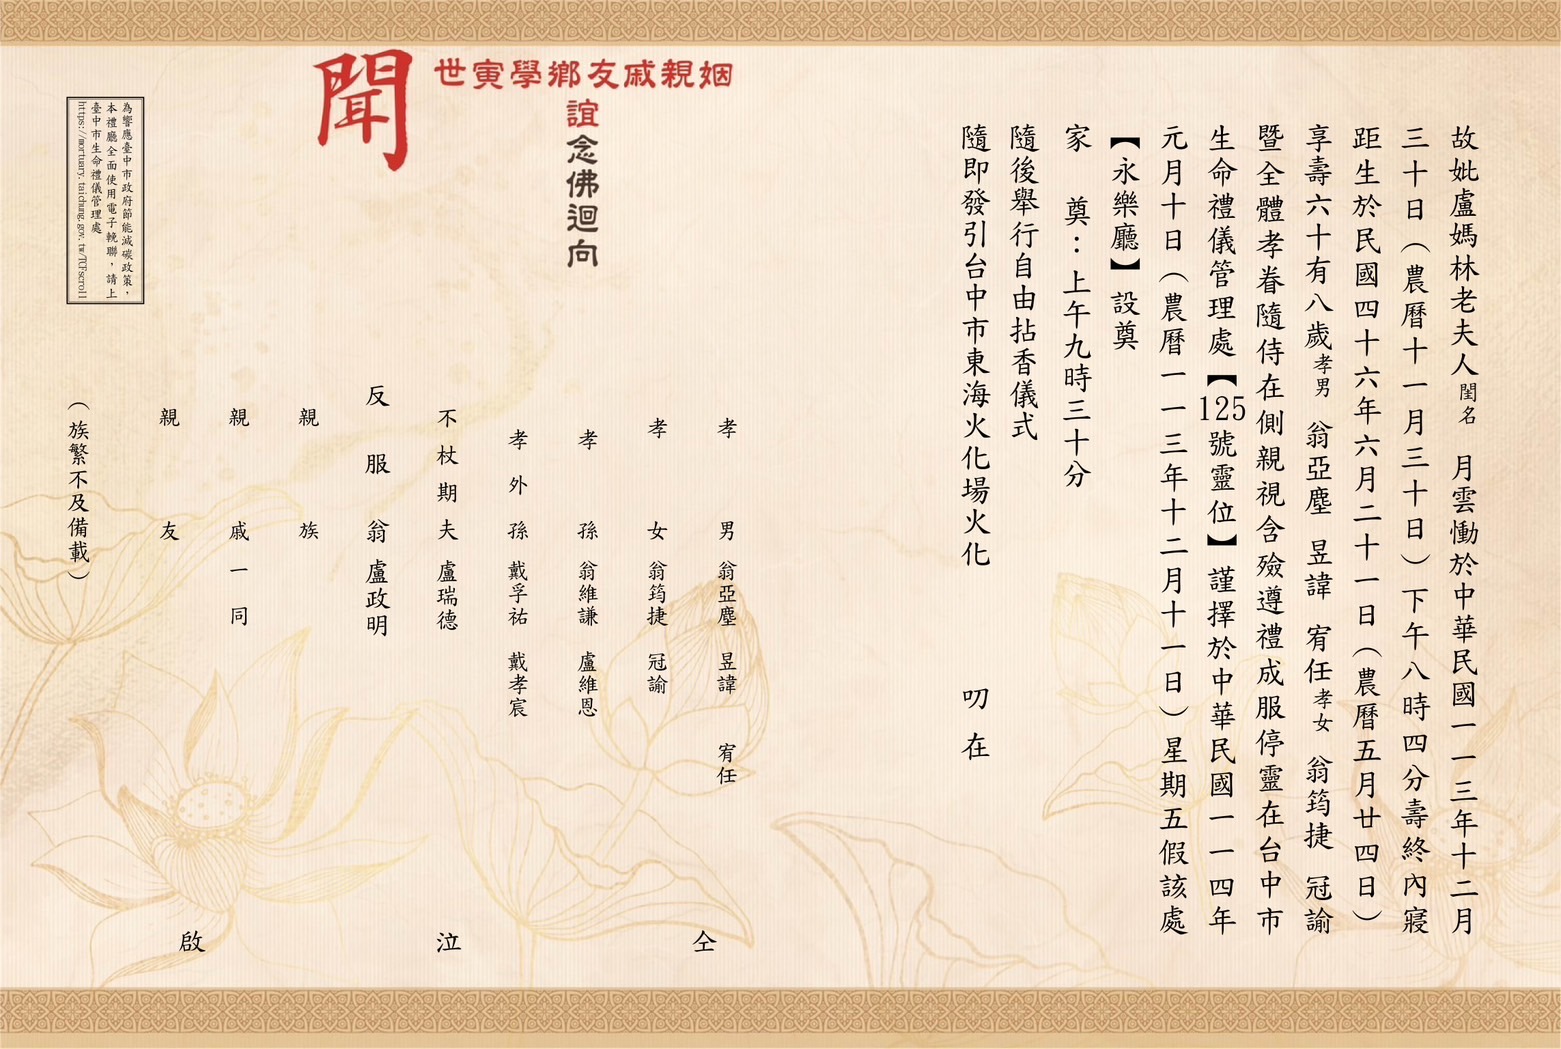 故妣盧媽林老夫人閨名　月雲慟於中華民國一一三年十二月
三十日（農曆十一月三十日）下午八時四分壽終內寢
距生於民國四十六年六月二十一日（農曆五月廿四日）
享壽六十有八歲孝男　翁亞塵　昱諱　宥任孝女　翁筠捷　冠諭
暨全體孝眷隨侍在側親視含殮遵禮成服停靈在台中市
生命禮儀管理處【125號靈位】謹擇於中華民國一一四年
元月十日（農曆一一三年十二月十一日）星期五假該處
【永樂廳】設奠
家　奠：上午九時三十分
隨後舉行自由拈香儀式
隨即發引台中市東海火化場火化　　叨在
姻親戚友鄉學寅世
誼念佛迴向
聞
孝男　翁亞塵　昱諱　宥任
孝女　翁筠捷　冠諭
孝孫　翁維謙　盧維恩
孝外孫　戴孚祐　戴孝宸
不杖期夫　盧瑞德
反服翁　盧政明
親族
親戚一同
親友
（族繁不及備載）
仝
泣
啟
為響應臺中市政府節能減碳政策，
本禮廳全面使用電子輓聯，請上
臺中市生命禮儀管理處
https://mortuary.taichung.gov.tw/TCFscroll